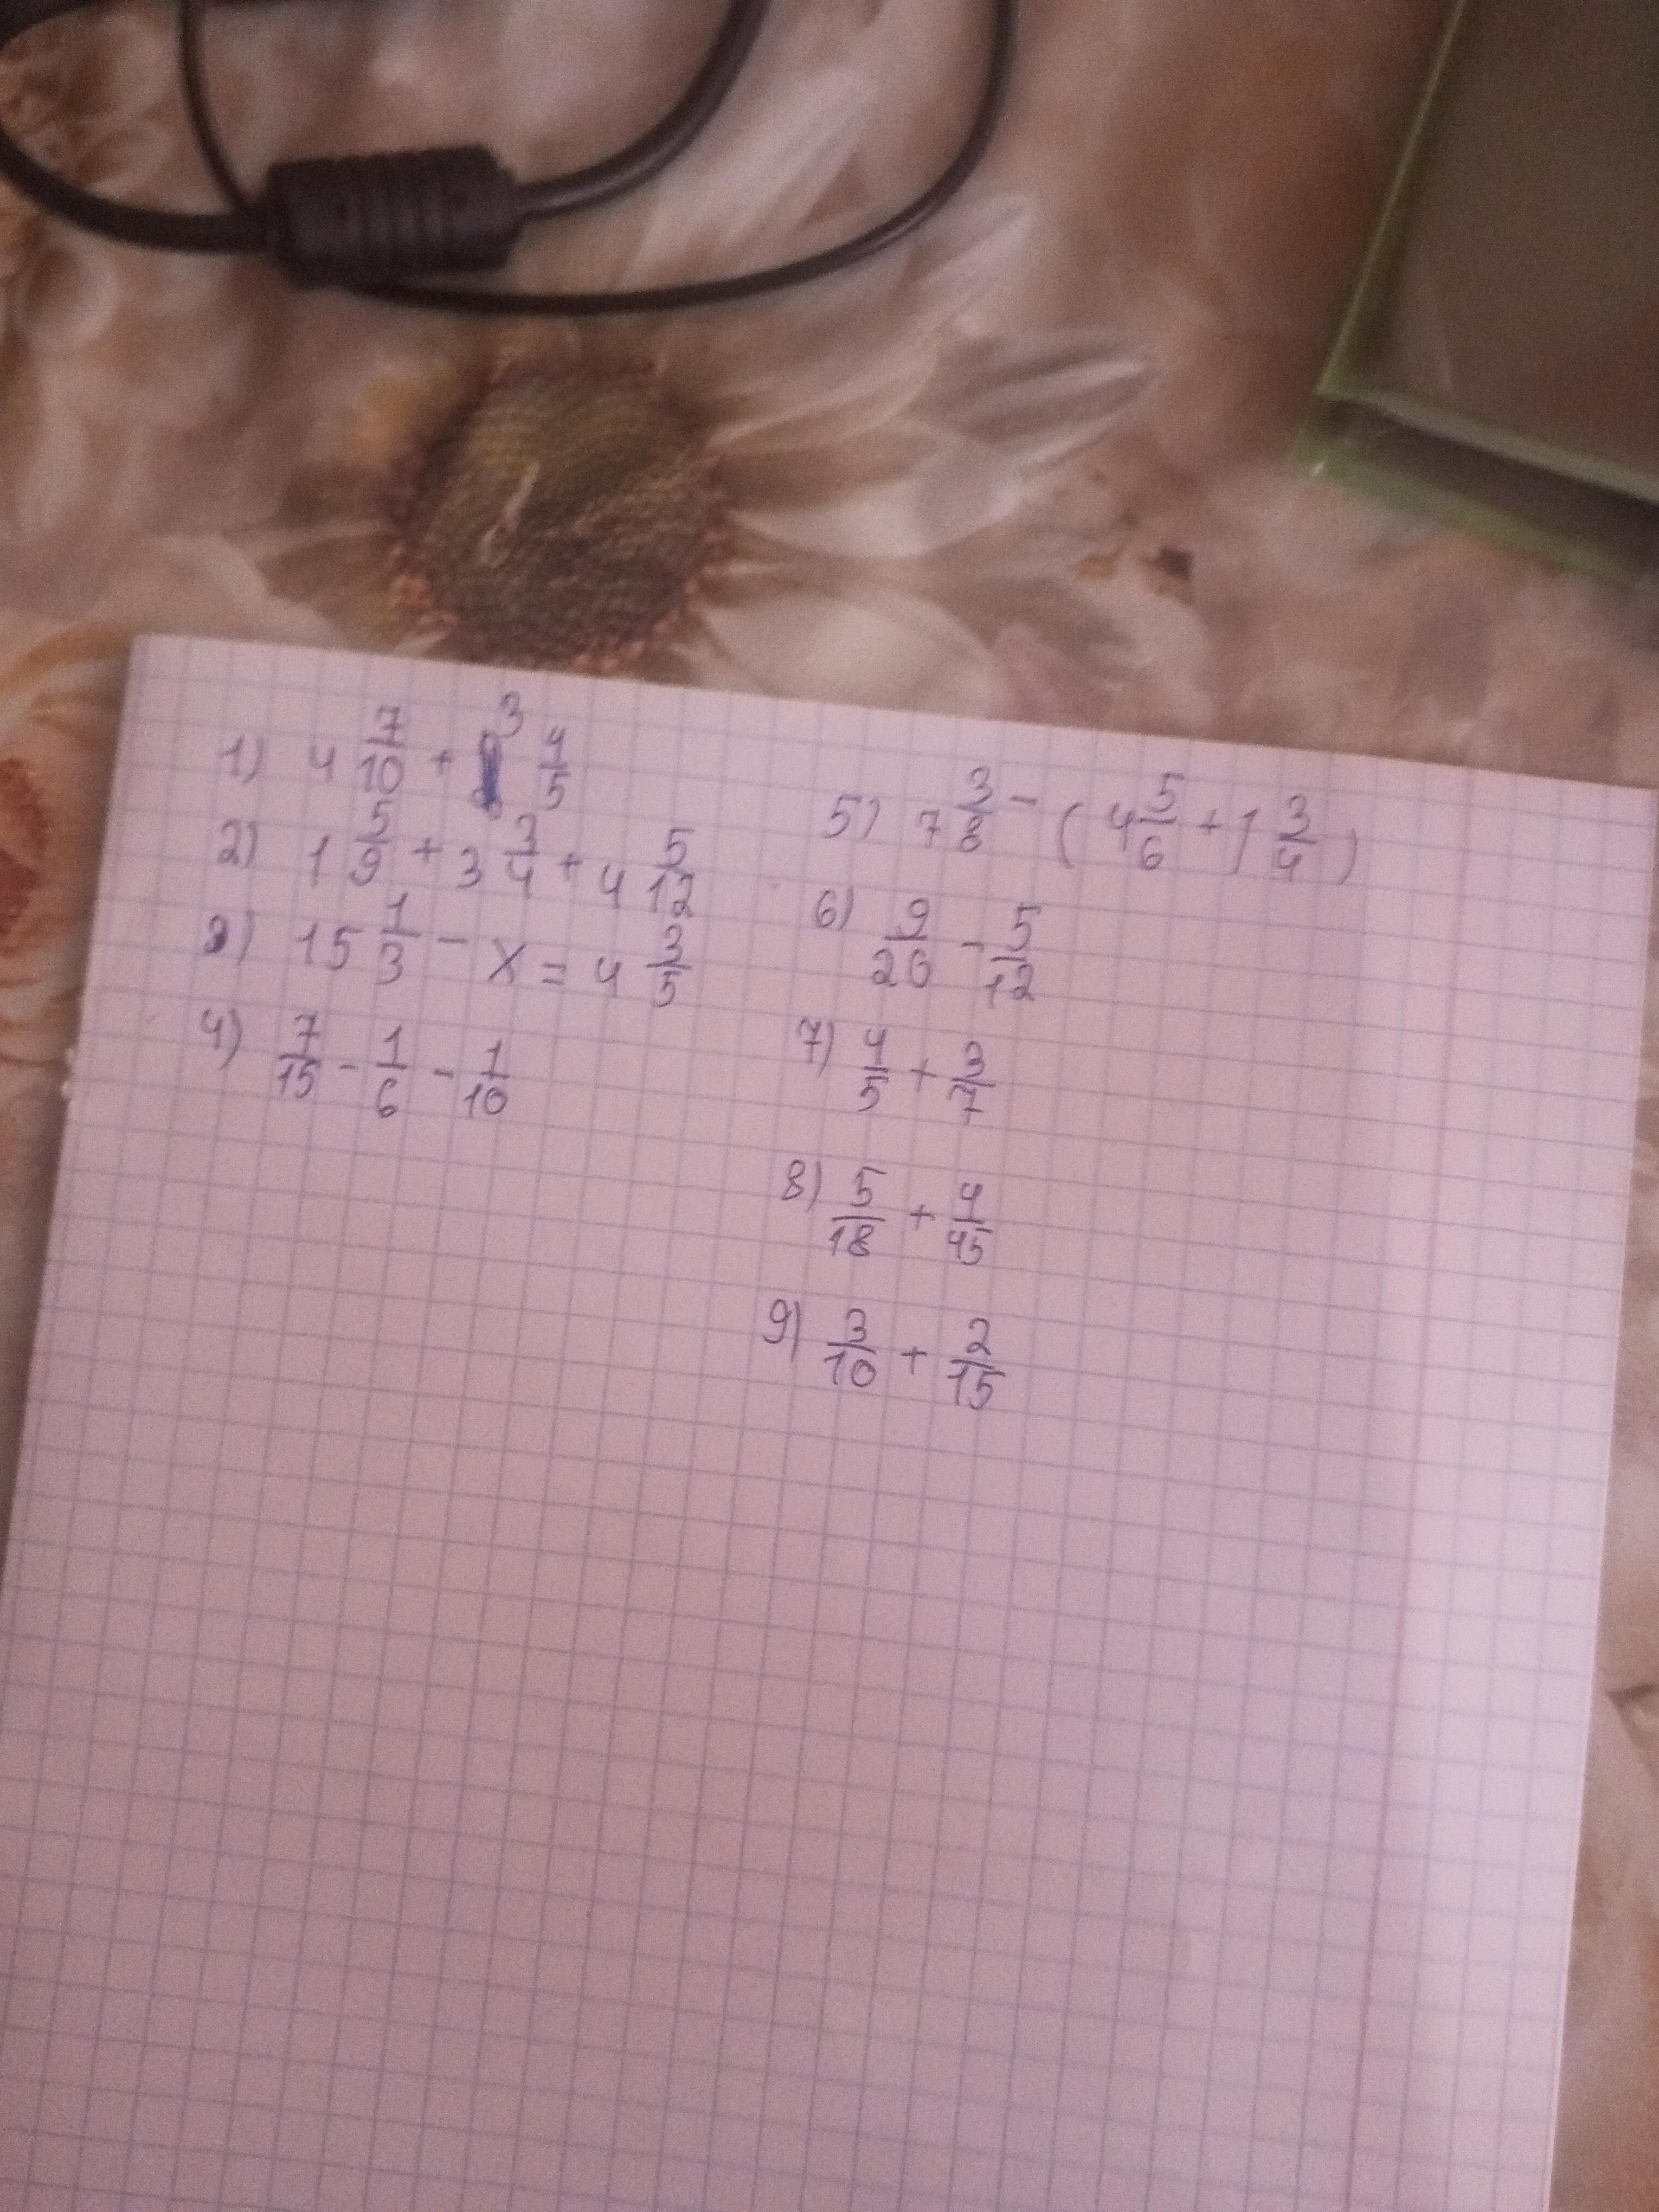 1) 4 7/10 + 3 4/5
2) 1 5/9 + 3 3/4 + 4 5/12
3) 15 1/3 - x = 4 2/5
4) 7/15 - 1/6 - 1/10
5) 7 3/8 - (4 5/6 + 1 3/4)
6) 9/20 - 5/12
7) 4/5 + 3/7
8) 5/18 + 4/45
9) 3/10 + 2/15